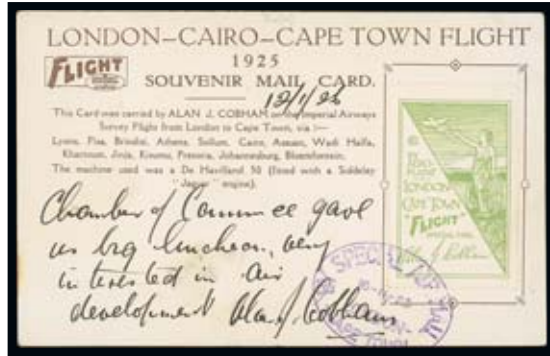 LONDON–CAIRO–CAPE TOWN FLIGHT
1925
FLIGHT
SOUVENIR MAIL CARD.
12/1/26
This Card was carried by ALAN J. COBHAM on the Imperial Airways
Survey Flight from London to Cape Town, via :—
Lyons, Pisa, Brindisi, Athens, Sollum, Cairo, Assuan, Wadi Halfa,
Khartoum, Jinja, Kisumu, Pretoria, Johannesburg, Bloemfontein.
The machine used was a De Havilland 50 (fitted with a Siddeley
"Jaguar" engine).
Chamber of Commerce gave
us big luncheon, very
interested in air
development Alan J Cobham
LONDON
CAPE TOWN
"FLIGHT"
Alan J Cobham
SPECIAL AIR MAIL
LONDON-
CAPE TOWN